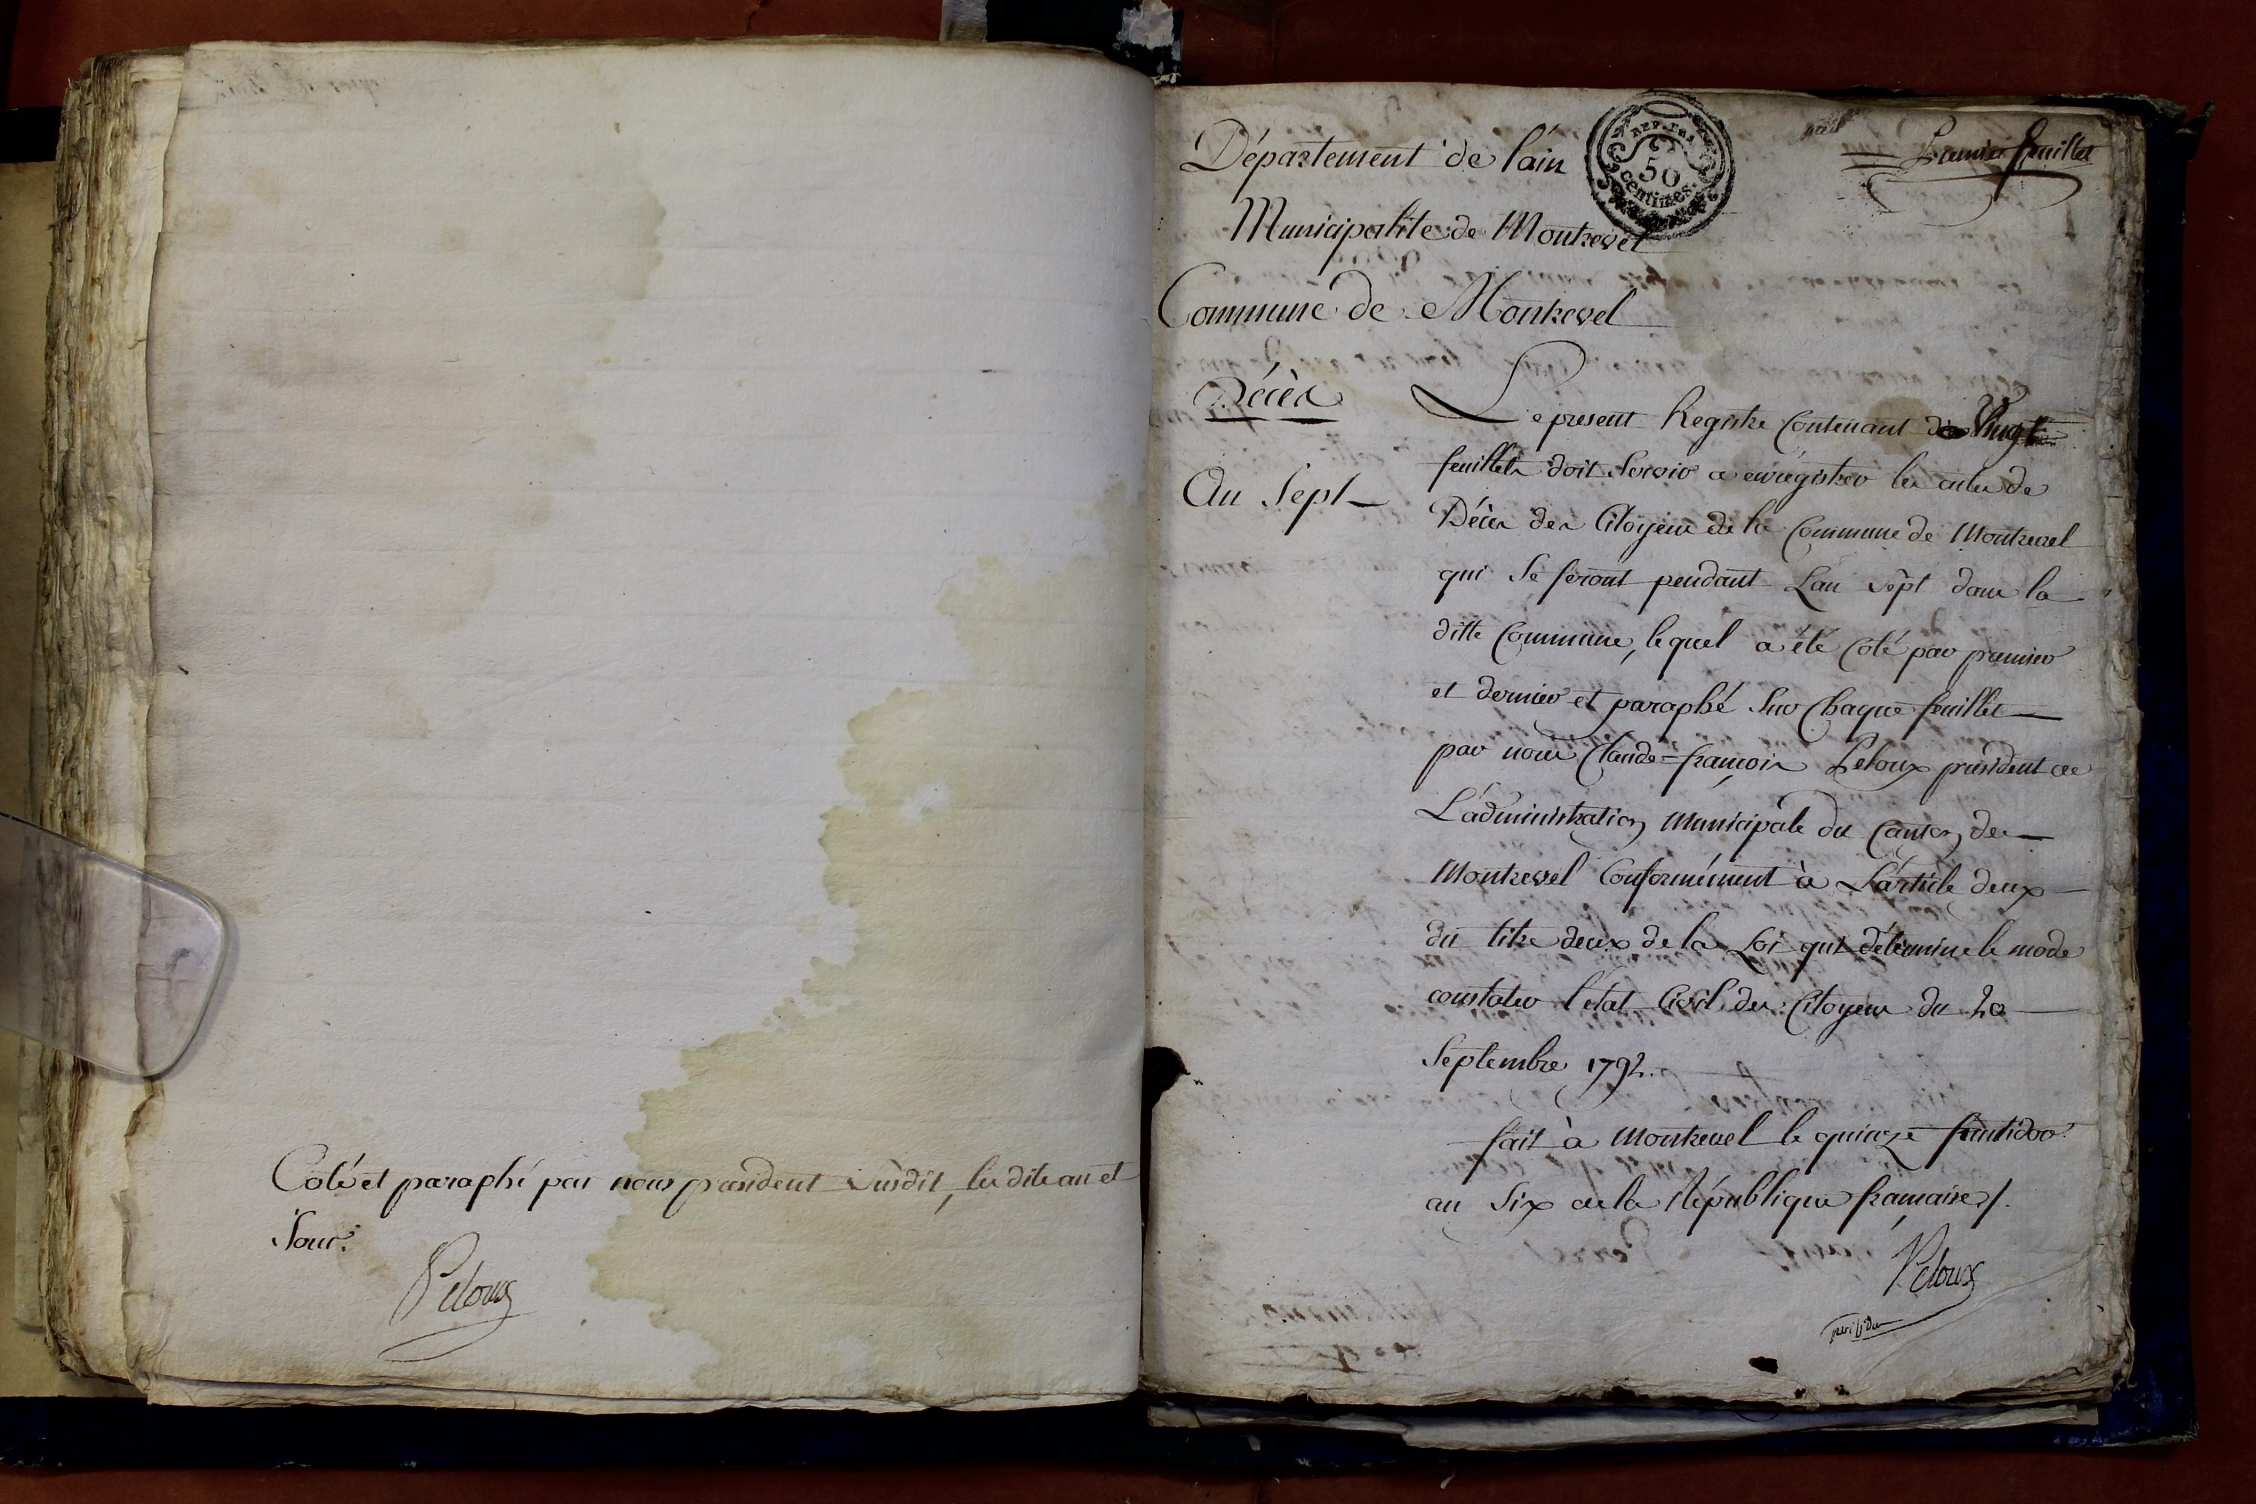 Coté et paraphé par nous president susdit, les dits an et
Jour.
Peloux
Département de l'ain
REP. FRA.
50
centimes.
Premier feuillet
Municipalite de Montrevel
Commune de Montrevel
Décès
An Sept
Le present Registre Contenant Vingt
feuillets doit Servir a enrégistrer les actes de
Décès des Citoyens de la Commune de Montrevel
qui Se feront pendant L'an Sept dans la
ditte Commune, lequel a été Coté par premier
et dernier et paraphé Sur Chaque feuillet
par nous Claude-françois Peloux président de
L'administration Municipale du Canton de
Montrevel Conformément à L'article deux
du titre deux de la Loi qui détermine le mode
constater l'état Civil des Citoyens du 20
Septembre 1792.
fait à Montrevel le quinze fructidor
an Six de la République française /.
Peloux